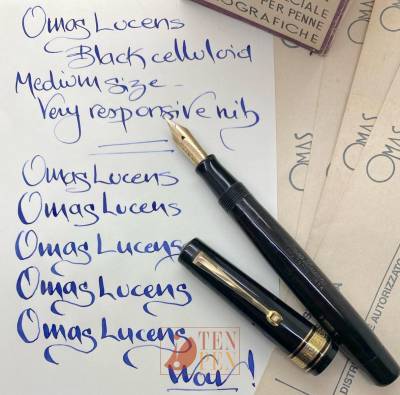 Omas Lucens
Black celluloid
Medium size -
Very responsive nib
Omas Lucens
Omas Lucens
Omas Lucens
Omas Lucens
Omas Lucens
Wow!
PER PENNE
OGRAFICHE
OMAS
OMAS
OMAS
AUTORIZZATO
DISTR
TEN
PEN